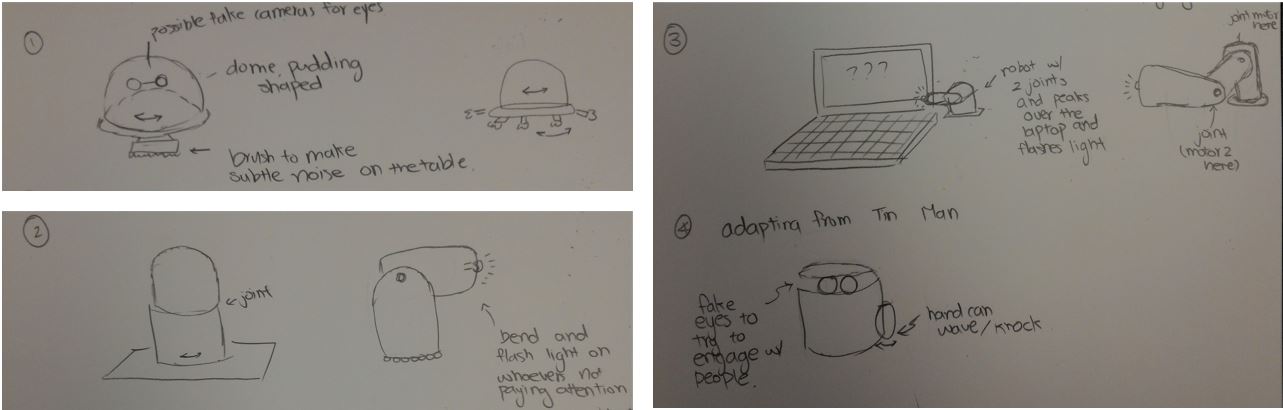 1
possible fake cameras for eyes
dome, pudding
shaped
brush to make
subtle noise on the table.
2
joint
bend and
flash light on
whoever's not
paying attention
3
???
robot w/
2 joints
and peaks
over the
laptop and
flashes light
joint motor
here
joint
(motor 2
here)
4 adapting from Tin Man
fake
eyes to
try to
engage w/
people.
hand can
wave/knock